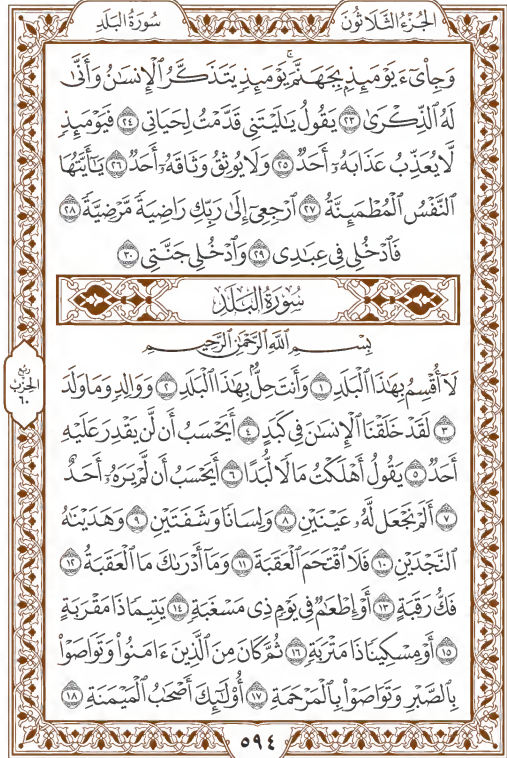 الجُزْءُ الثَّلَاثُونَ
سُورَةُ البَلَدِ
وَجِاْىٓءَ يَوْمَئِذِۭ بِجَهَنَّمَۚ يَوْمَئِذٖ يَتَذَكَّرُ ٱلۡإِنسَٰنُ وَأَنَّىٰ
لَهُ ٱلذِّكۡرَىٰ ٢٣ يَقُولُ يَٰلَيۡتَنِي قَدَّمۡتُ لِحَيَاتِي ٢٤ فَيَوۡمَئِذٖ
لَّا يُعَذِّبُ عَذَابَهُۥٓ أَحَدٞ ٢٥ وَلَا يُوثِقُ وَثَاقَهُۥٓ أَحَدٞ ٢٦ يَٰٓأَيَّتُهَا
ٱلنَّفۡسُ ٱلۡمُطۡمَئِنَّةُ ٢٧ ٱرۡجِعِيٓ إِلَىٰ رَبِّكِ رَاضِيَةٗ مَّرۡضِيَّةٗ ٢٨
فَٱدۡخُلِي فِي عِبَٰدِي ٢٩ وَٱدۡخُلِي جَنَّتِي ٣٠
سُورَةُ البَلَدِ
بِسۡمِ ٱللَّهِ ٱلرَّحۡمَٰنِ ٱلرَّحِيمِ
لَآ أُقۡسِمُ بِهَٰذَا ٱلۡبَلَدِ ١ وَأَنتَ حِلُّۢ بِهَٰذَا ٱلۡبَلَدِ ٢ وَوَالِدٖ وَمَا وَلَدَ
٣ لَقَدۡ خَلَقۡنَا ٱلۡإِنسَٰنَ فِي كَبَدٍ ٤ أَيَحۡسَبُ أَن لَّن يَقۡدِرَ عَلَيۡهِ
أَحَدٞ ٥ يَقُولُ أَهۡلَكۡتُ مَالٗا لُّبَدًا ٦ أَيَحۡسَبُ أَن لَّمۡ يَرَهُۥٓ أَحَدٌ
٧ أَلَمۡ نَجۡعَل لَّهُۥ عَيۡنَيۡنِ ٨ وَلِسَانٗا وَشَفَتَيۡنِ ٩ وَهَدَيۡنَٰهُ
ٱلنَّجۡدَيۡنِ ١٠ فَلَا ٱقۡتَحَمَ ٱلۡعَقَبَةَ ١١ وَمَآ أَدۡرَىٰكَ مَا ٱلۡعَقَبَةُ ١٢
فَكُّ رَقَبَةٍ ١٣ أَوۡ إِطۡعَٰمٞ فِي يَوۡمٖ ذِي مَسۡغَبَةٖ ١٤ يَتِيمٗا ذَا مَقۡرَبَةٍ
١٥ أَوۡ مِسۡكِينٗا ذَا مَتۡرَبَةٖ ١٦ ثُمَّ كَانَ مِنَ ٱلَّذِينَ ءَامَنُواْ وَتَوَاصَوۡاْ
بِٱلصَّبۡرِ وَتَوَاصَوۡاْ بِٱلۡمَرۡحَمَةِ ١٧ أُوْلَٰٓئِكَ أَصۡحَٰبُ ٱلۡمَيۡمَنَةِ ١٨
ربع
الحزب
٦٠
٥٩٤